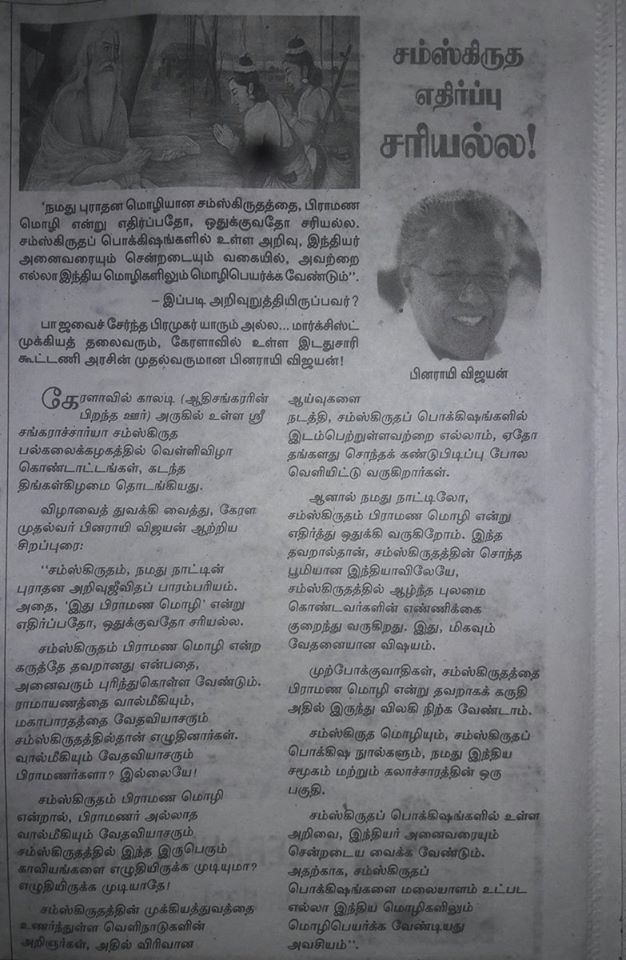 சம்ஸ்கிருத
எதிர்ப்பு
சரியல்ல!
'நமது புராதன மொழியான சம்ஸ்கிருதத்தை, பிராமண
மொழி என்று எதிர்ப்பதோ, ஒதுக்குவதோ சரியல்ல.
சம்ஸ்கிருதப் பொக்கிஷங்களில் உள்ள அறிவு, இந்தியர்
அனைவரையும் சென்றடையும் வகையில், அவற்றை
எல்லா இந்திய மொழிகளிலும் மொழிபெயர்க்க வேண்டும்".
– இப்படி அறிவுறுத்தியிருப்பவர்?
பாஜவைச் சேர்ந்த பிரமுகர் யாரும் அல்ல... மார்க்சிஸ்ட்
முக்கியத் தலைவரும், கேரளாவில் உள்ள இடதுசாரி
கூட்டணி அரசின் முதல்வருமான பினராயி விஜயன்!
பினராயி விஜயன்
கேரளாவில் காலடி (ஆதிசங்கரரின்
பிறந்த ஊர்) அருகில் உள்ள ஸ்ரீ
சங்கராச்சார்யா சம்ஸ்கிருத
பல்கலைக்கழகத்தில் வெள்ளிவிழா
கொண்டாட்டங்கள், கடந்த
திங்கள்கிழமை தொடங்கியது.
விழாவைத் துவக்கி வைத்து, கேரள
முதல்வர் பினராயி விஜயன் ஆற்றிய
சிறப்புரை:
"சம்ஸ்கிருதம், நமது நாட்டின்
புராதன அறிவுஜீவிதப் பாரம்பரியம்.
அதை, 'இது பிராமண மொழி' என்று
எதிர்ப்பதோ, ஒதுக்குவதோ சரியல்ல.
சம்ஸ்கிருதம் பிராமண மொழி என்ற
கருத்தே தவறானது என்பதை,
அனைவரும் புரிந்துகொள்ள வேண்டும்.
ராமாயணத்தை வால்மீகியும்,
மகாபாரதத்தை வேதவியாசரும்
சம்ஸ்கிருதத்தில்தான் எழுதினார்கள்.
வால்மீகியும் வேதவியாசரும்
பிராமணர்களா? இல்லையே!
சம்ஸ்கிருதம் பிராமண மொழி
என்றால், பிராமணர் அல்லாத
வால்மீகியும் வேதவியாசரும்
சம்ஸ்கிருதத்தில் இந்த இருபெரும்
காவியங்களை எழுதியிருக்க முடியுமா?
எழுதியிருக்க முடியாதே!
சம்ஸ்கிருதத்தின் முக்கியத்துவத்தை
உணர்ந்துள்ள வெளிநாடுகளின்
அறிஞர்கள், அதில் விரிவான
ஆய்வுகளை
நடத்தி, சம்ஸ்கிருதப் பொக்கிஷங்களில்
இடம்பெற்றுள்ளவற்றை எல்லாம், ஏதோ
தங்களது சொந்தக் கண்டுபிடிப்பு போல
வெளியிட்டு வருகிறார்கள்.
ஆனால் நமது நாட்டிலோ,
சம்ஸ்கிருதம் பிராமண மொழி என்று
எதிர்த்து ஒதுக்கி வருகிறோம். இந்த
தவறால்தான், சம்ஸ்கிருதத்தின் சொந்த
பூமியான இந்தியாவிலேயே,
சம்ஸ்கிருதத்தில் ஆழ்ந்த புலமை
கொண்டவர்களின் எண்ணிக்கை
குறைந்து வருகிறது. இது, மிகவும்
வேதனையான விஷயம்.
முற்போக்குவாதிகள், சம்ஸ்கிருதத்தை
பிராமண மொழி என்று தவறாகக் கருதி
அதில் இருந்து விலகி நிற்க வேண்டாம்.
சம்ஸ்கிருத மொழியும், சம்ஸ்கிருதப்
பொக்கிஷ நூல்களும், நமது இந்திய
சமூகம் மற்றும் கலாச்சாரத்தின் ஒரு
பகுதி.
சம்ஸ்கிருதப் பொக்கிஷங்களில் உள்ள
அறிவை, இந்தியர் அனைவரையும்
சென்றடைய வைக்க வேண்டும்.
அதற்காக, சம்ஸ்கிருதப்
பொக்கிஷங்களை மலையாளம் உட்பட
எல்லா இந்திய மொழிகளிலும்
மொழிபெயர்க்க வேண்டியது
அவசியம்".